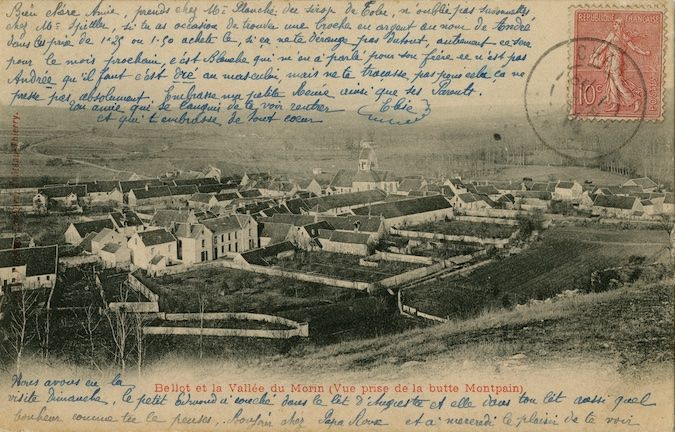 Bien chère Amie, prends chez Mr Planche du sirop de Tolu, n'oublie pas surveiller
chez Mr Spitler, si tu as occasion de trouver une broche en argent au nom de André
dans les prix de 1.25 ou 1.50 achète le, si ça ne te dérange pas du tout, autrement ce sera
pour le mois prochain, c'est Blanche qui m'en a parlé pour son frère ce n'est pas
Andrée qu'il faut c'est dré au masculin, mais ne te tracasse pas pour cela ça ne
presse pas, absolument. Embrasse ma petite Renée ainsi que ses Parents.
Ton amie qui se languis de te voir rentrer
et qui t'embrasse de tout coeur
Elise
RÉPUBLIQUE FRANÇAISE
10c
POSTES
Bellot et la Vallée du Morin (Vue prise de la butte Montpain)
Nous avons eu la
visite Dimanche, le petit Edmond a couché dans le lit d'Auguste et elle dans ton lit aussi quel
bonheur comme tu le penses. Bonsoir cher Papa et a mercredi le plaisir de te voir